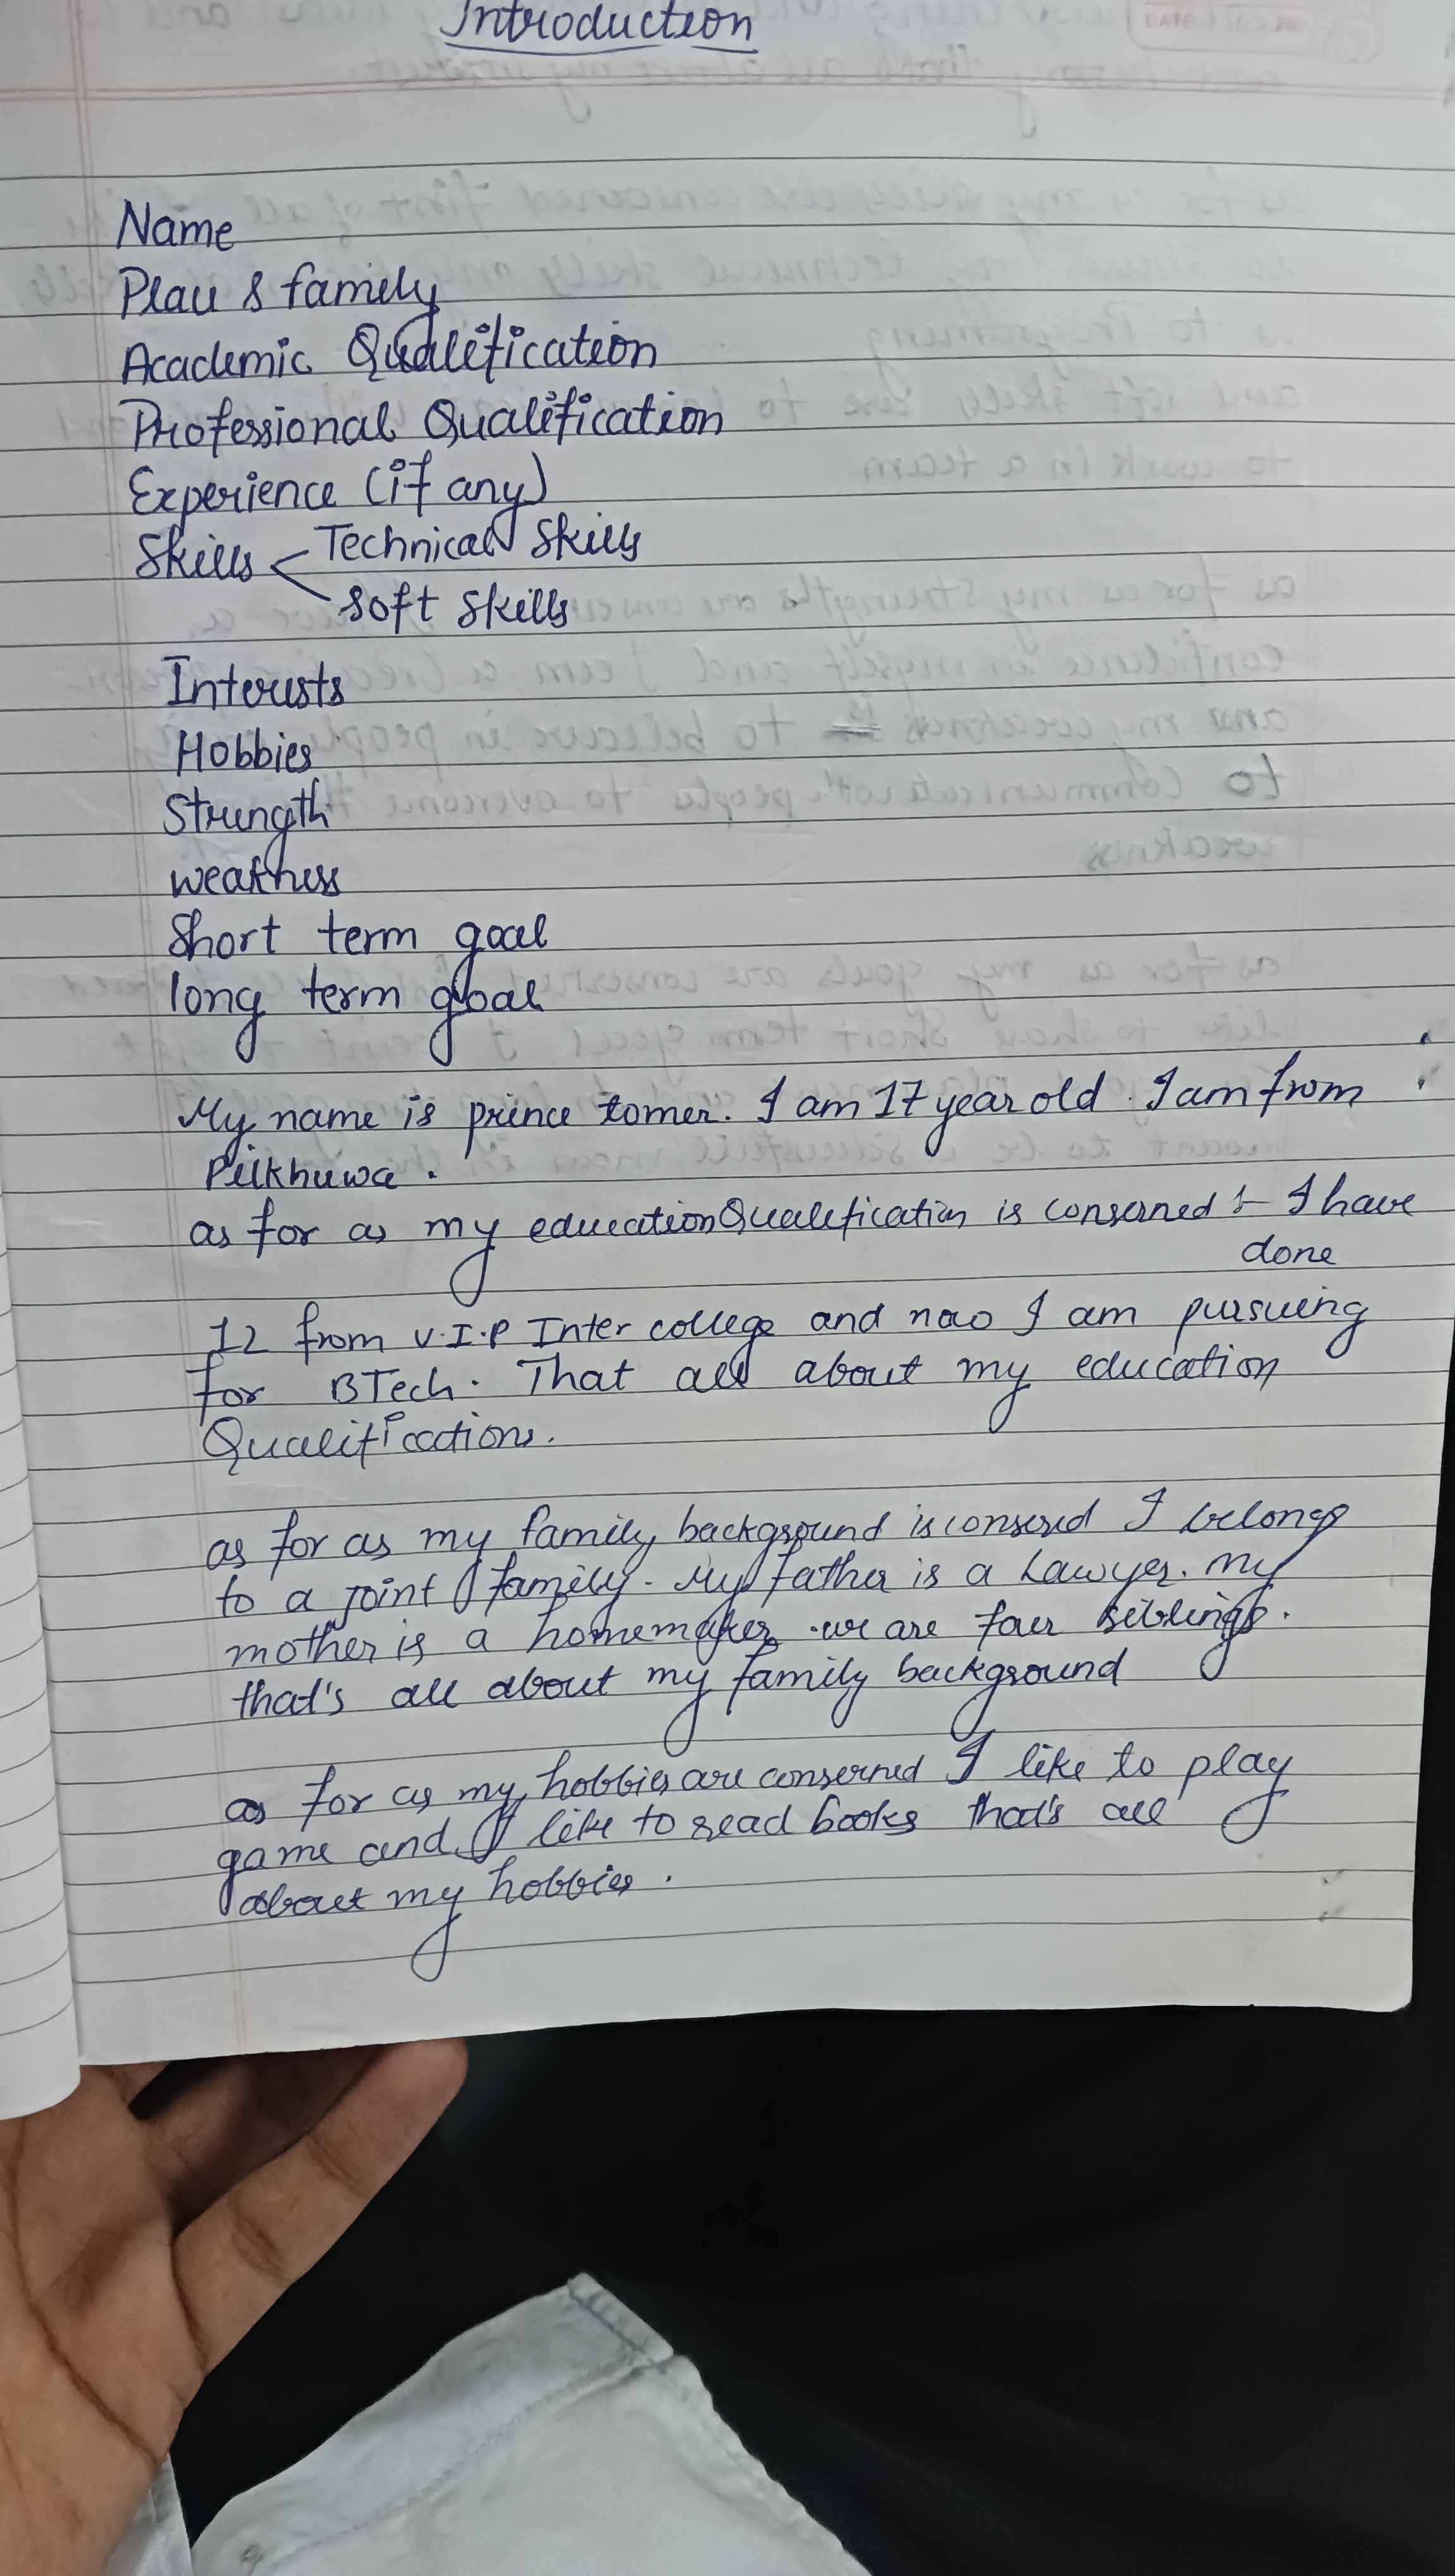 Introduction
Name
Place & family
Academic Qualification
Professional Qualification
Experience (if any)
Skills < Technical Skills
Soft Skills
Interests
Hobbies
Strength
weakness
Short term goal
long term goal
My name is prince tomer. I am 17 year old. I am from
Pilkhuwa.
as for as my education Qualification is conserned :- I have
done
12 from V.I.P Inter college and now I am pursuing
for BTech. That all about my education
Qualifications.
as for as my family background is conserned I belongs
to a joint family. My father is a Lawyer. my
mother is a homemaker. we are four siblings.
that's all about my family background
as for as my hobbies are conserned I like to play
game and I like to read books that's all
about my hobbies.